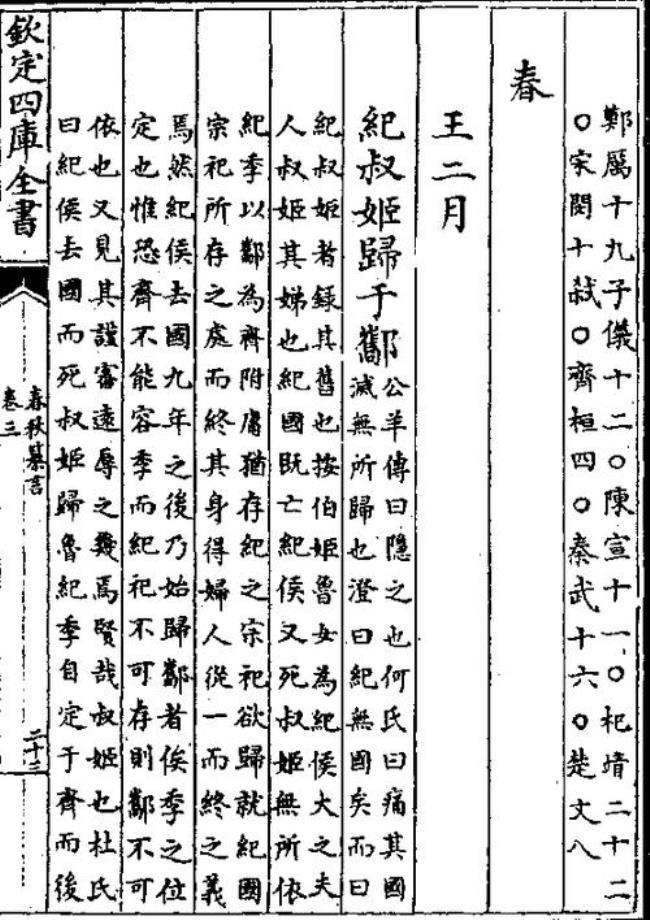 鄭厲十九子儀十二〇陳宣十一〇杞靖二十二
〇宋閔十弒〇齊桓四〇秦武十六〇楚文八
春
王二月
紀叔姬歸于酅
公羊傳曰隱之也何氏曰痛其國
滅無所歸也澄曰紀無國矣而曰
紀叔姬者錄其舊也按伯姬魯女為紀侯大之夫
人叔姬其娣也紀國既亡紀侯又死叔姬無所依
紀季以酅為齊附庸猶存紀之宗祀欲歸就紀國
宗祀所存之處而終其身得婦人從一而終之義
焉然紀侯去國九年之後乃始歸酅者俟季之位
定也惟恐齊不能容季而紀祀不可存則酅不可
依也又見其謹審遠辱之幾焉賢哉叔姬也杜氏
曰紀侯去國而死叔姬歸魯紀季自定于齊而後
欽定四庫全書
春秋纂言
卷三
二十三